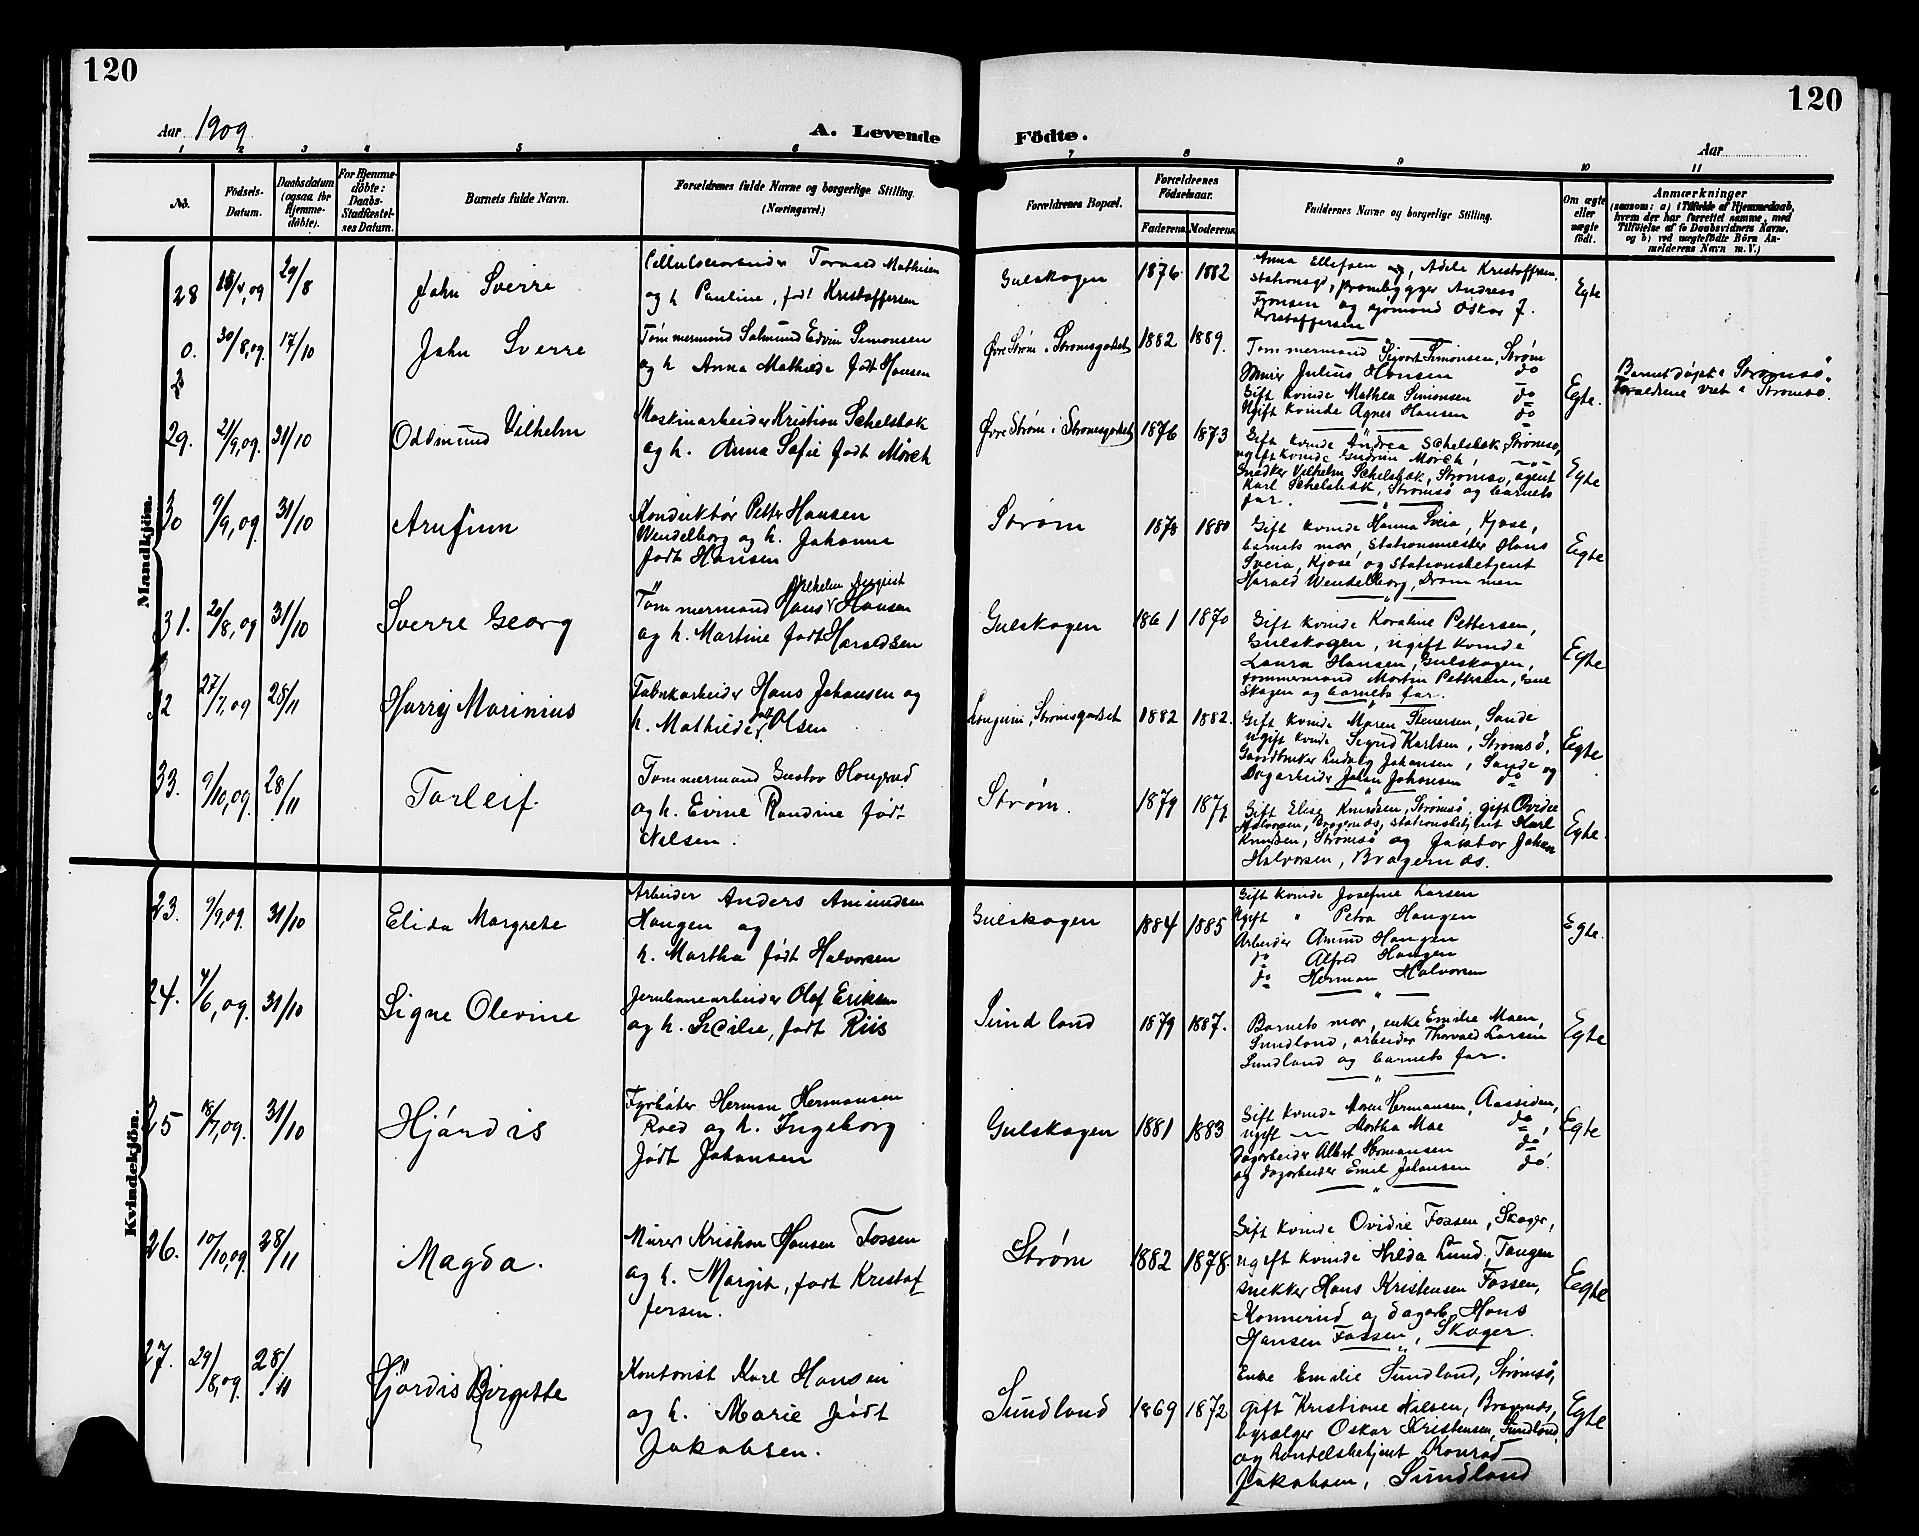 120
120
Aar 1909
A. Levende
Födte.
Aar
1 2 3 4 5 6 7 8 9 10 11
No.
Födsels-
Datum.
Daabsdatum
(ogsaa for
Hjemme-
döbte).
For Hjemme-
döbte:
Daabs-
Stadfæstel-
ses Datum.
Barnets fulde Navn.
Forældrenes fulde Navne og borgerlige Stilling.
(Næringsvei.)
Forældrenes Bopæl.
Forældrenes
Födselsaar.
Faderens. Moderens.
Faddernes Navne og borgerlige Stilling.
Om ægte
eller
uægte
födt.
Anmærkninger
(saasom: a) i Tilfælde af Hjemmedaab,
hvem der har forrettet samme, med
Tilföielse af to Daabsvidners Navne,
og b) ved uægtefödte Börn An-
melderens Navn m. V.)
Mandkjön.
28 /4,09 29/8 John Sverre
Cellulosearbeider Torvald Mathisen
og h. Pauline, født Kristoffersen
Gulskogen 1876 1882
Anna Ellefsen og, Adele Kristoffersen
Stationsgd, prambygger Andreas
og sjømand Oskar J.
Kristoffersen
Egte
0. 30/8,09. 17/10 John Sverre
Tømmermand Salmund Edvin Simonsen
og h Anna Mathilde født Hansen
Øvre Strøm i Strømsgodset 1882 1889.
Tømmermand Sigvart Simonsen, Strøm
Murer Julius Hansen do
Gift kvinde Mathea Simonsen do
Ugift kvinde Agnes Hansen do
Egte.
Barnet døpt i Strømsø.
Forældrene viet i Strømsø.
29. 21/9,09. 31/10 Oddmund Vilhelm
Maskinarbeider Kristian Schelsbak
og h. Anna Sofie født Mørch
Øvre Strøm i Strømsgodset 1876 1873
Gift kvinde Andrea Schelsbak, Strømsø,
ugift kvinde Gudrun Mørch,
Snedker Vilhelm Schelsbak, Strømsø, agent
Karl Schelsbak, Strømsø og barnets
far.
Egte
30 9/9,09. 31/10 Arnfinn
Konduktør Petter Hansen
Wendelborg og h. Johanne
født Hansen
Strøm 1878 1880
Gift kvinde Hanna Sveia, Kjose,
barnets mor, Stationsmester Hans
Sveia, Kjose og Stationsbetjent
Harald Wendelborg, Drammen
Egte
31. 20/8,09 31/10 Sverre Georg
Vilhelm August
Tømmermand Hans Hansen
og h. Martine født Haraldsen
Gulskogen 1861 1870
Gift kvinde Koraline Pettersen,
Gulskogen, ugift kvinde
Laura Hansen, Gulskogen,
tømmermand Martin Pettersen, Gul
skogen og barnets far.
Egte
32 27/7,09 28/11 Harry Marinius
Fabrikarbeider Hans Johansen og
h. Mathilde født Olsen
Strømsgodset 1882 1882.
Gift kvinde Maren Stenersen, Sande
ugift kvinde Sigrid Karlsen, Strømsø,
Gaardbruker Ludvig Johansen, Sande og
Dagarbeider Johan Johansen do
Egte
33. 9/10,09 28/11 Torleif.
Tømmermand Gustav Haugrud
og h. Evine Randine født
Nilsen.
Strøm. 1879 1879
Gift Elise Knudsen, Strømsø, gift Ovidie
Halvorsen, Bragernæs, stationsbetjent Karl
Knudsen, Strømsø og Johan
Halvorsen, Bragernæs.
Egte.
Kvindekjön.
23. 9/9,09. 31/10 Elida Margrete
Arbeider Anders Amundsen
Haugen og
h. Martha født Halvorsen
Gulskogen 1884 1885
Gift kvinde Josefine Larsen
Ugift " Petra Haugen
Arbeider Amund Haugen
do Alfred Haugen
do Herman Halvorsen
Egte.
24. 4/6,09. 31/10 Signe Olevine
Jernbanearbeider Olaf Eriksen
og h. Secilie, født Riis
Sundland 1879 1887.
Barnets mor, enke Emilie Moen,
Sundland, arbeider Thorvald Larsen
Sundland og barnets far.
Egte
25 18/7,09. 31/10 Hjördis
Fyrbøter Herman Hermansen
Roed og h. Ingeborg
født Johansen
Gulskogen 1881 1883
Gift kvinde Maren Hermansen, Aassiden,
ugift Martha Moe do,
Dagarbeider Albert Hermansen do
og dagarbeider Emil Johansen do.
Egte
26. 10/10,09. 28/11 Magda.
Murer Kristian Hansen Fossen
og h. Margit, født Kristof
fersen.
Strøm 1882 1878.
Gift kvinde Ovidie Fossen, Skoger,
ugift kvinde Hilda Lund, Tangen
snekker Hans Kristensen Fossen,
Konnerud og dagarb. Hans
Hansen Fossen, Skoger.
Egte
27. 29/8,09. 28/11 Hjördis Birgitte
Kontorist Karl Hansen
og h. Marie født
Jakobsen.
Sundland 1869 1872
Enke Emilie Sundland, Strømsø,
gift Kristiane Nilsen, Bragernæs,
byselger Oskar Kristensen, Sundland,
og handelsbetjent Konrad
Jakobsen, Sundland
Egte